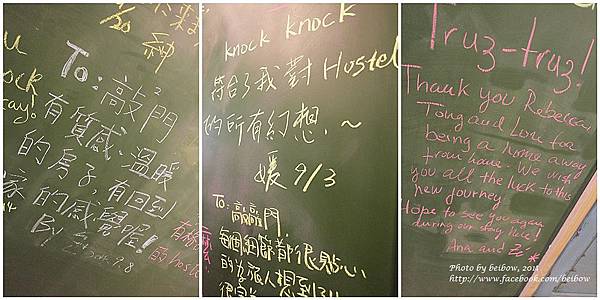 To: 敲門
有質感、溫暖
的房子, 有回到
家的感覺喔!
By
9.8
knock knock
符合了我對 Hostel
的所有幻想. ~
媛 9/3
To: 敲敲門,
每個細節都很貼心
Truz-truz!
Thank you Rebecca,
Tong and Lori for
being a home away
from home. We wish
you all the luck to this
new journey.
Hope to see you again
during our stay here!
Ana and
Photo by beibow, 2011
http://www.facebook.com/beibow